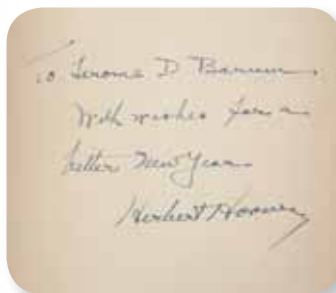 To Jerome D Barnum
With wishes for a
better New Year
Herbert Hoover